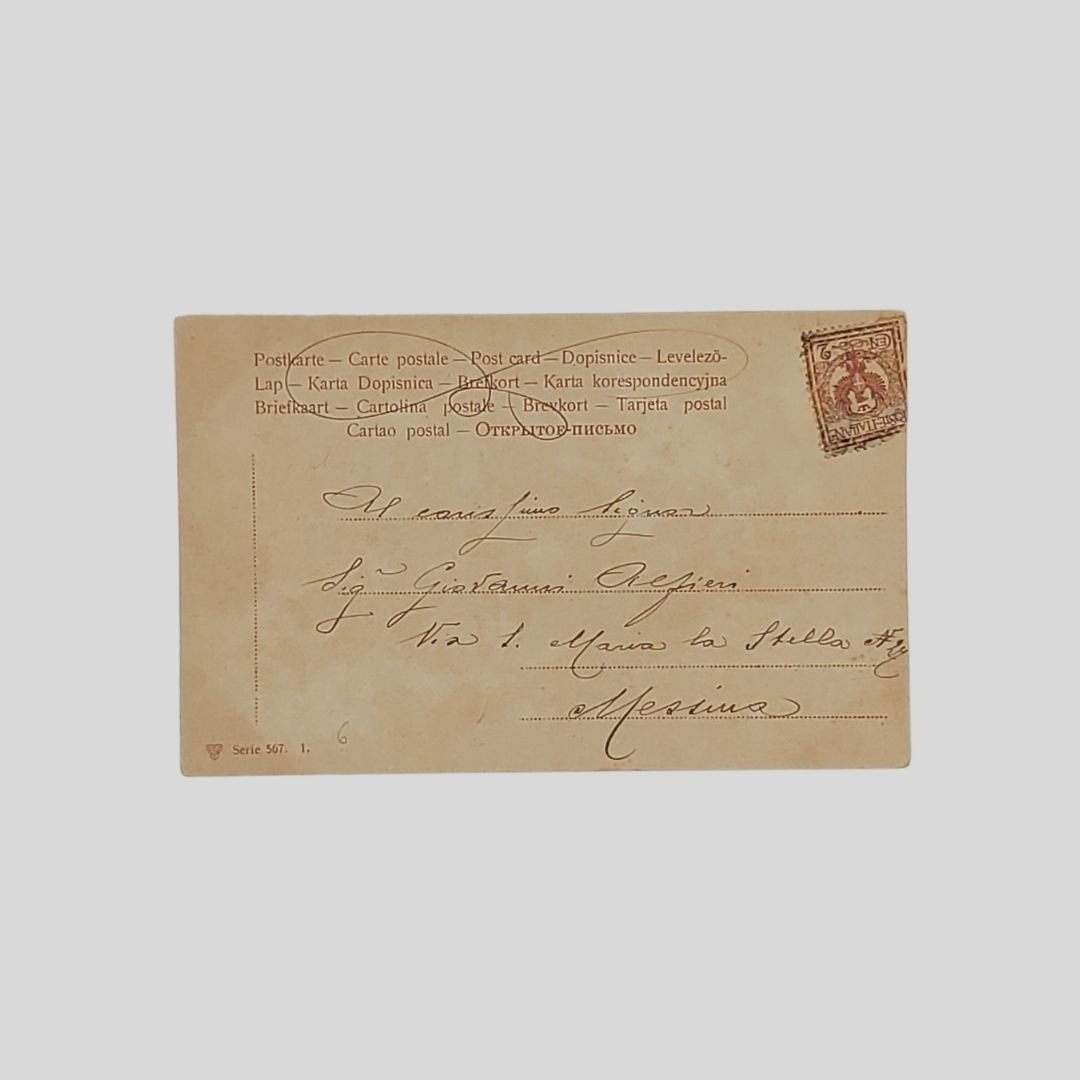 Postkarte — Carte postale — Post card — Dopisnice — Levelező-
Lap — Karta Dopisnica — Brefkort — Karta korespondencyjna
Briefkaart — Cartolina postale — Brevkort — Tarjeta postal
Cartao postal — Открытое-письмо
2
CEN
POSTE ITALIANE
Al carissimo Signor
Sigr Giovanni Alfieri
Via S. Maria la Stella N
Messina
6
Serie 567. 1.